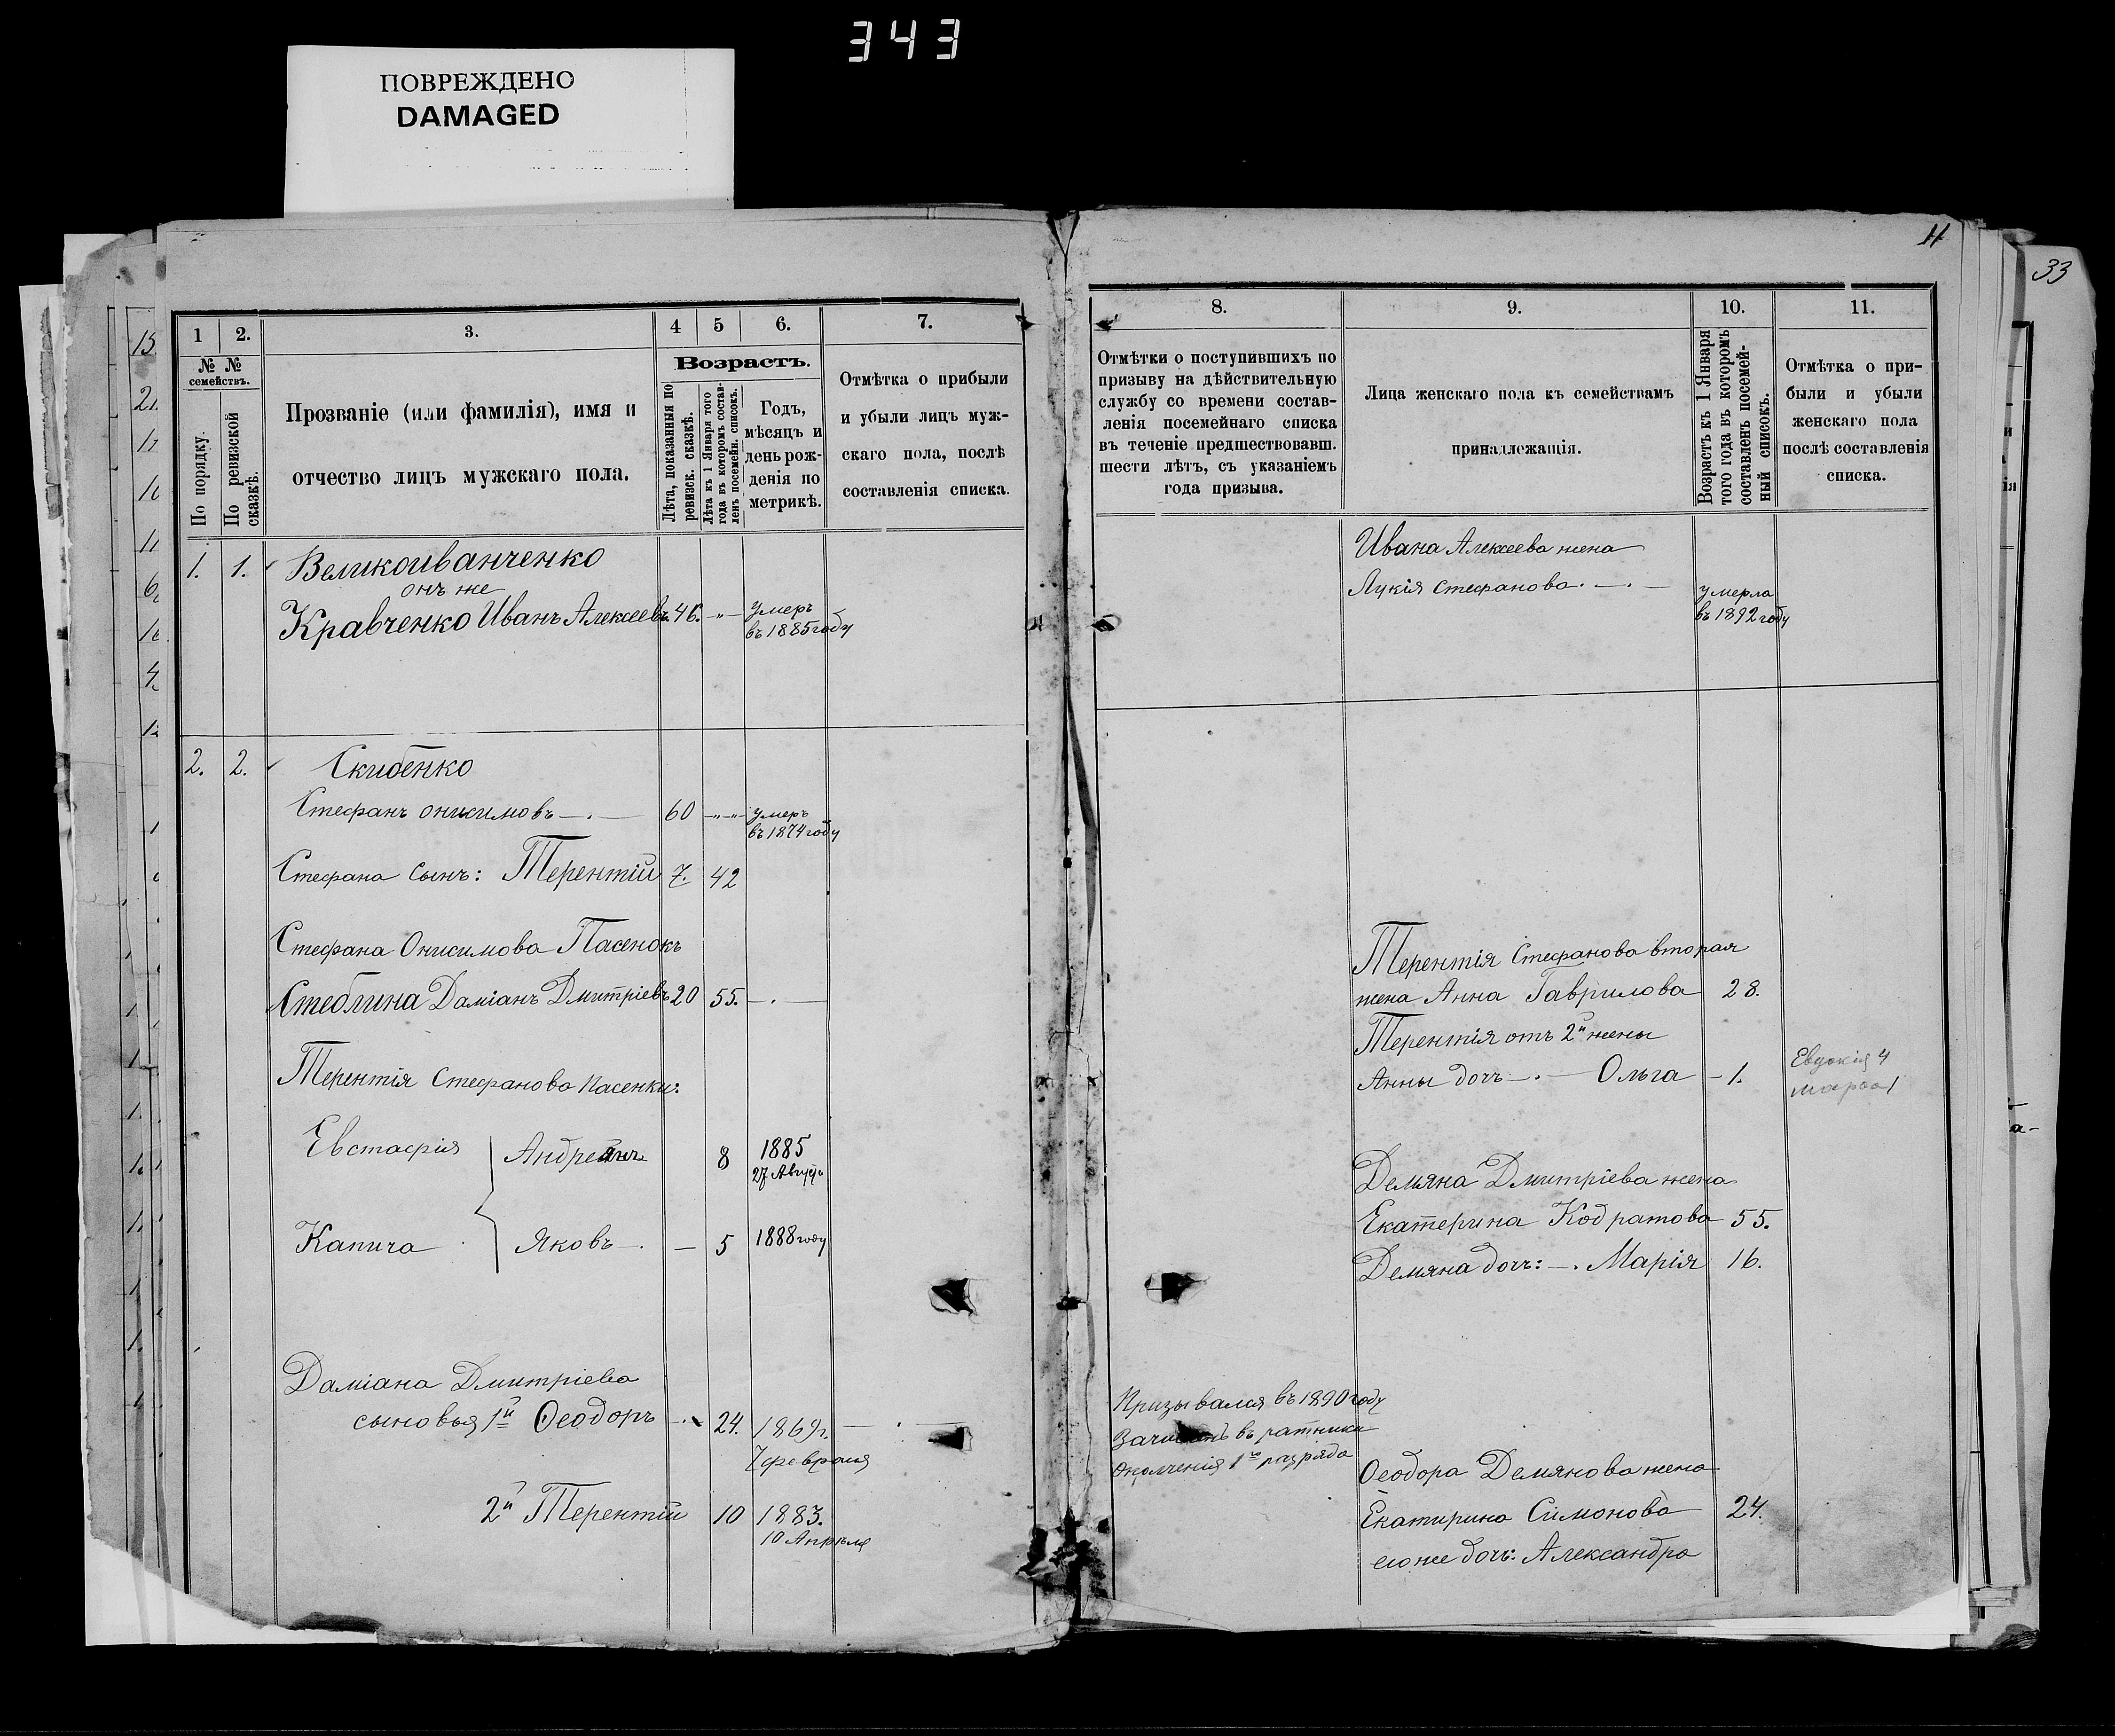 343
ПОВРЕЖДЕНО
DAMAGED
11
33
1
2.
3.
4
5
6.
7.
№ №
семействъ.
По порядку.
По ревизской
сказкѣ.
Прозваніе (или фамилія), имя и
отчество лицъ мужскаго пола.
Возрастъ.
Лѣта, показанныя по
ревизск. сказкѣ.
Лѣта къ 1 Января того
года въ которомъ состав-
ленъ посемейн. списокъ.
Годъ,
мѣсяцъ и
день рож-
денія по
метрикѣ.
Отмѣтка о прибыли
и убыли лицъ муж-
скаго пола, послѣ
составленія списка.
1. 1. Великоиванченко
онъ же
Кравченко Иванъ Алексеевъ. 46. —„— умеръ
въ 1885 году
2. 2. Скибенко
Стефанъ Онисимовъ —.— 60 —„—„— умеръ
въ 1874 году
Стефана сынъ: Терентій 7. 42
Стефана Онисимова Пасенокъ
Стеблина Даміанъ Дмитріевъ 20 55. —.—
Терентія Стефанова пасенки:
Евстафія Андреянъ 8 1885
27 Августа
Капича Яковъ —. — 5 1888 году
Даміана Дмитріева
сыновья 1й Ѳеодоръ —. 24. 1869г. —.—
7 февраля
2й Терентій 10 1883.
10 Апрѣля
8.
9.
10.
11.
Отмѣтки о поступившихъ по
призыву на дѣйствительную
службу со времени состав-
ленія посемейнаго списка
въ теченіе предшествовавш.
шести лѣтъ, съ указаніемъ
года призыва.
Лица женскаго пола къ семействамъ
принадлежащія.
Возрастъ къ 1 Января
того года въ которомъ
составленъ посемей-
ный списокъ.
Отмѣтка о при-
были и убыли
женскаго пола
послѣ составленія
списка.
Ивана Алексеева жена
Лукія Стефанова. —.— умерла
въ 1892 году
Терентія Стефанова вторая
жена Анна Гаврилова 28.
Терентія отъ 2й жены
Анны дочь —.— Ольга — 1.
Евдокія 4
Марфа 1
Демяна Дмитріева жена
Екатерина Кодратова 55.
Демяна дочь: —. Марія 16.
Призывался въ 1890 году
Зачисленъ въ ратники
ополченія 1го разряда
Ѳеодора Демянова жена
Екатирина Симонова 24.
его же дочь: Александра